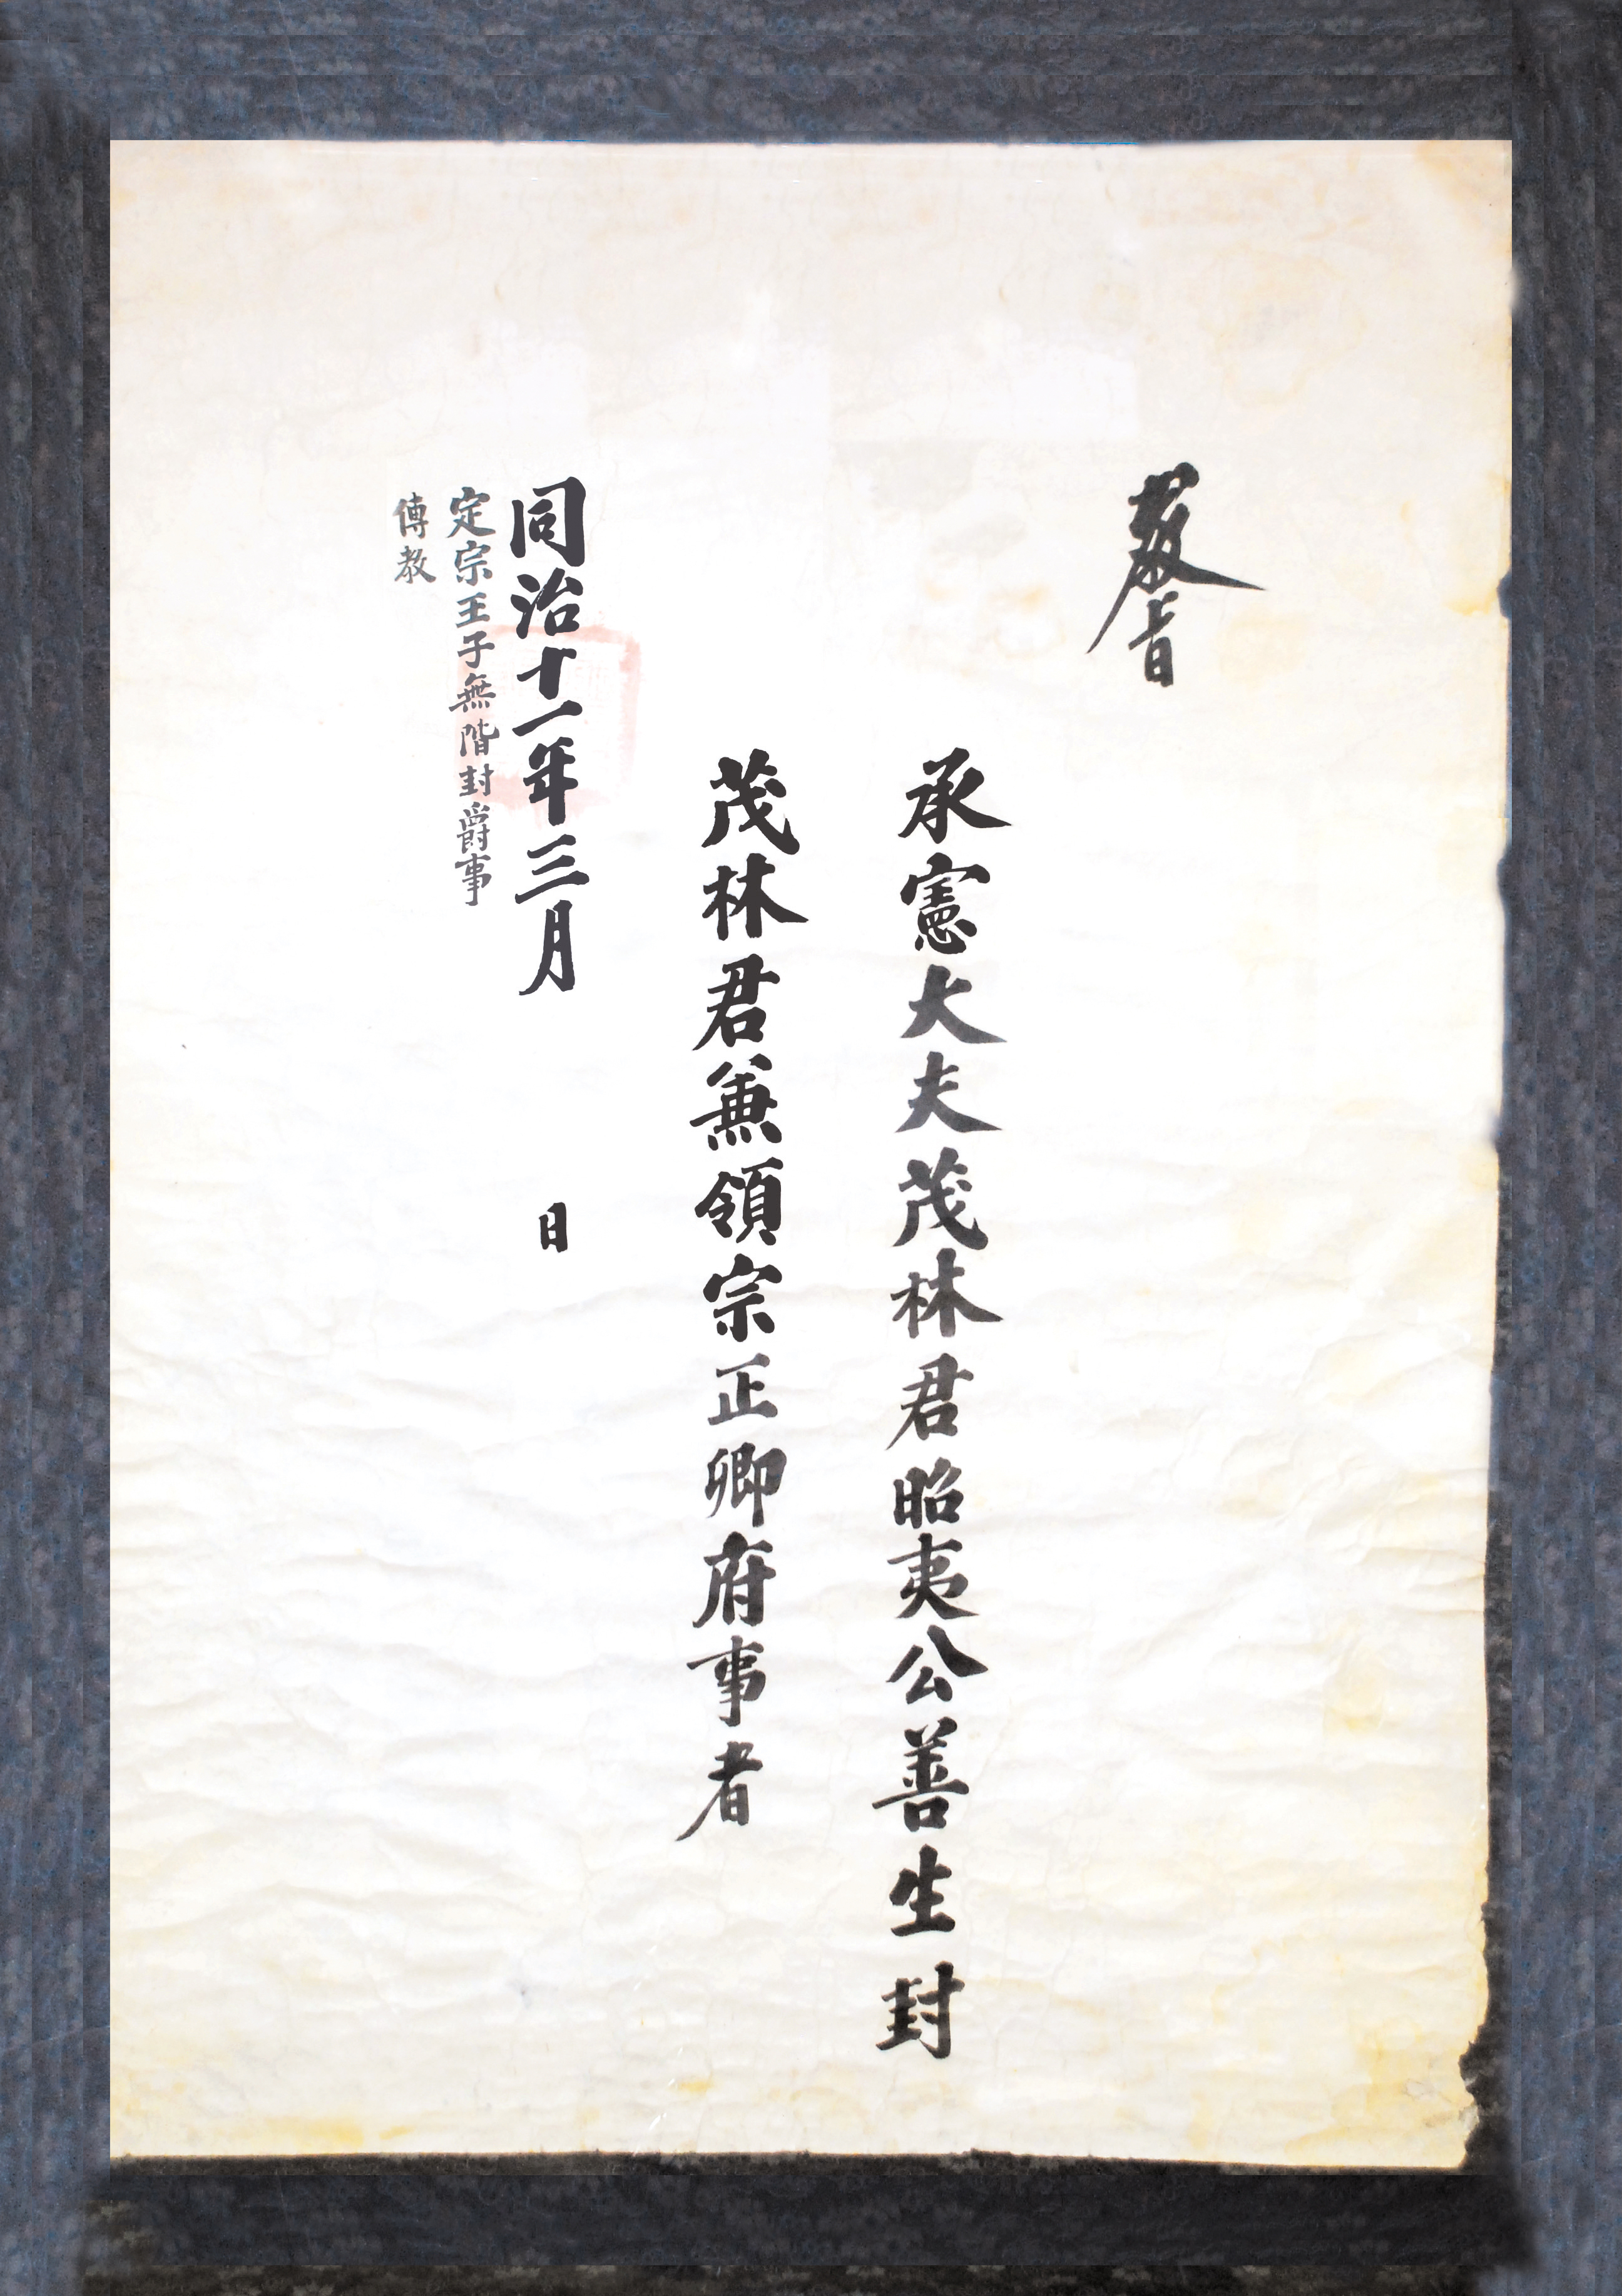 教旨
承憲大夫茂林君昭夷公善生封
茂林君兼領宗正卿府事者
同治十一年三月 日
定宗王子無階封爵事
傳教